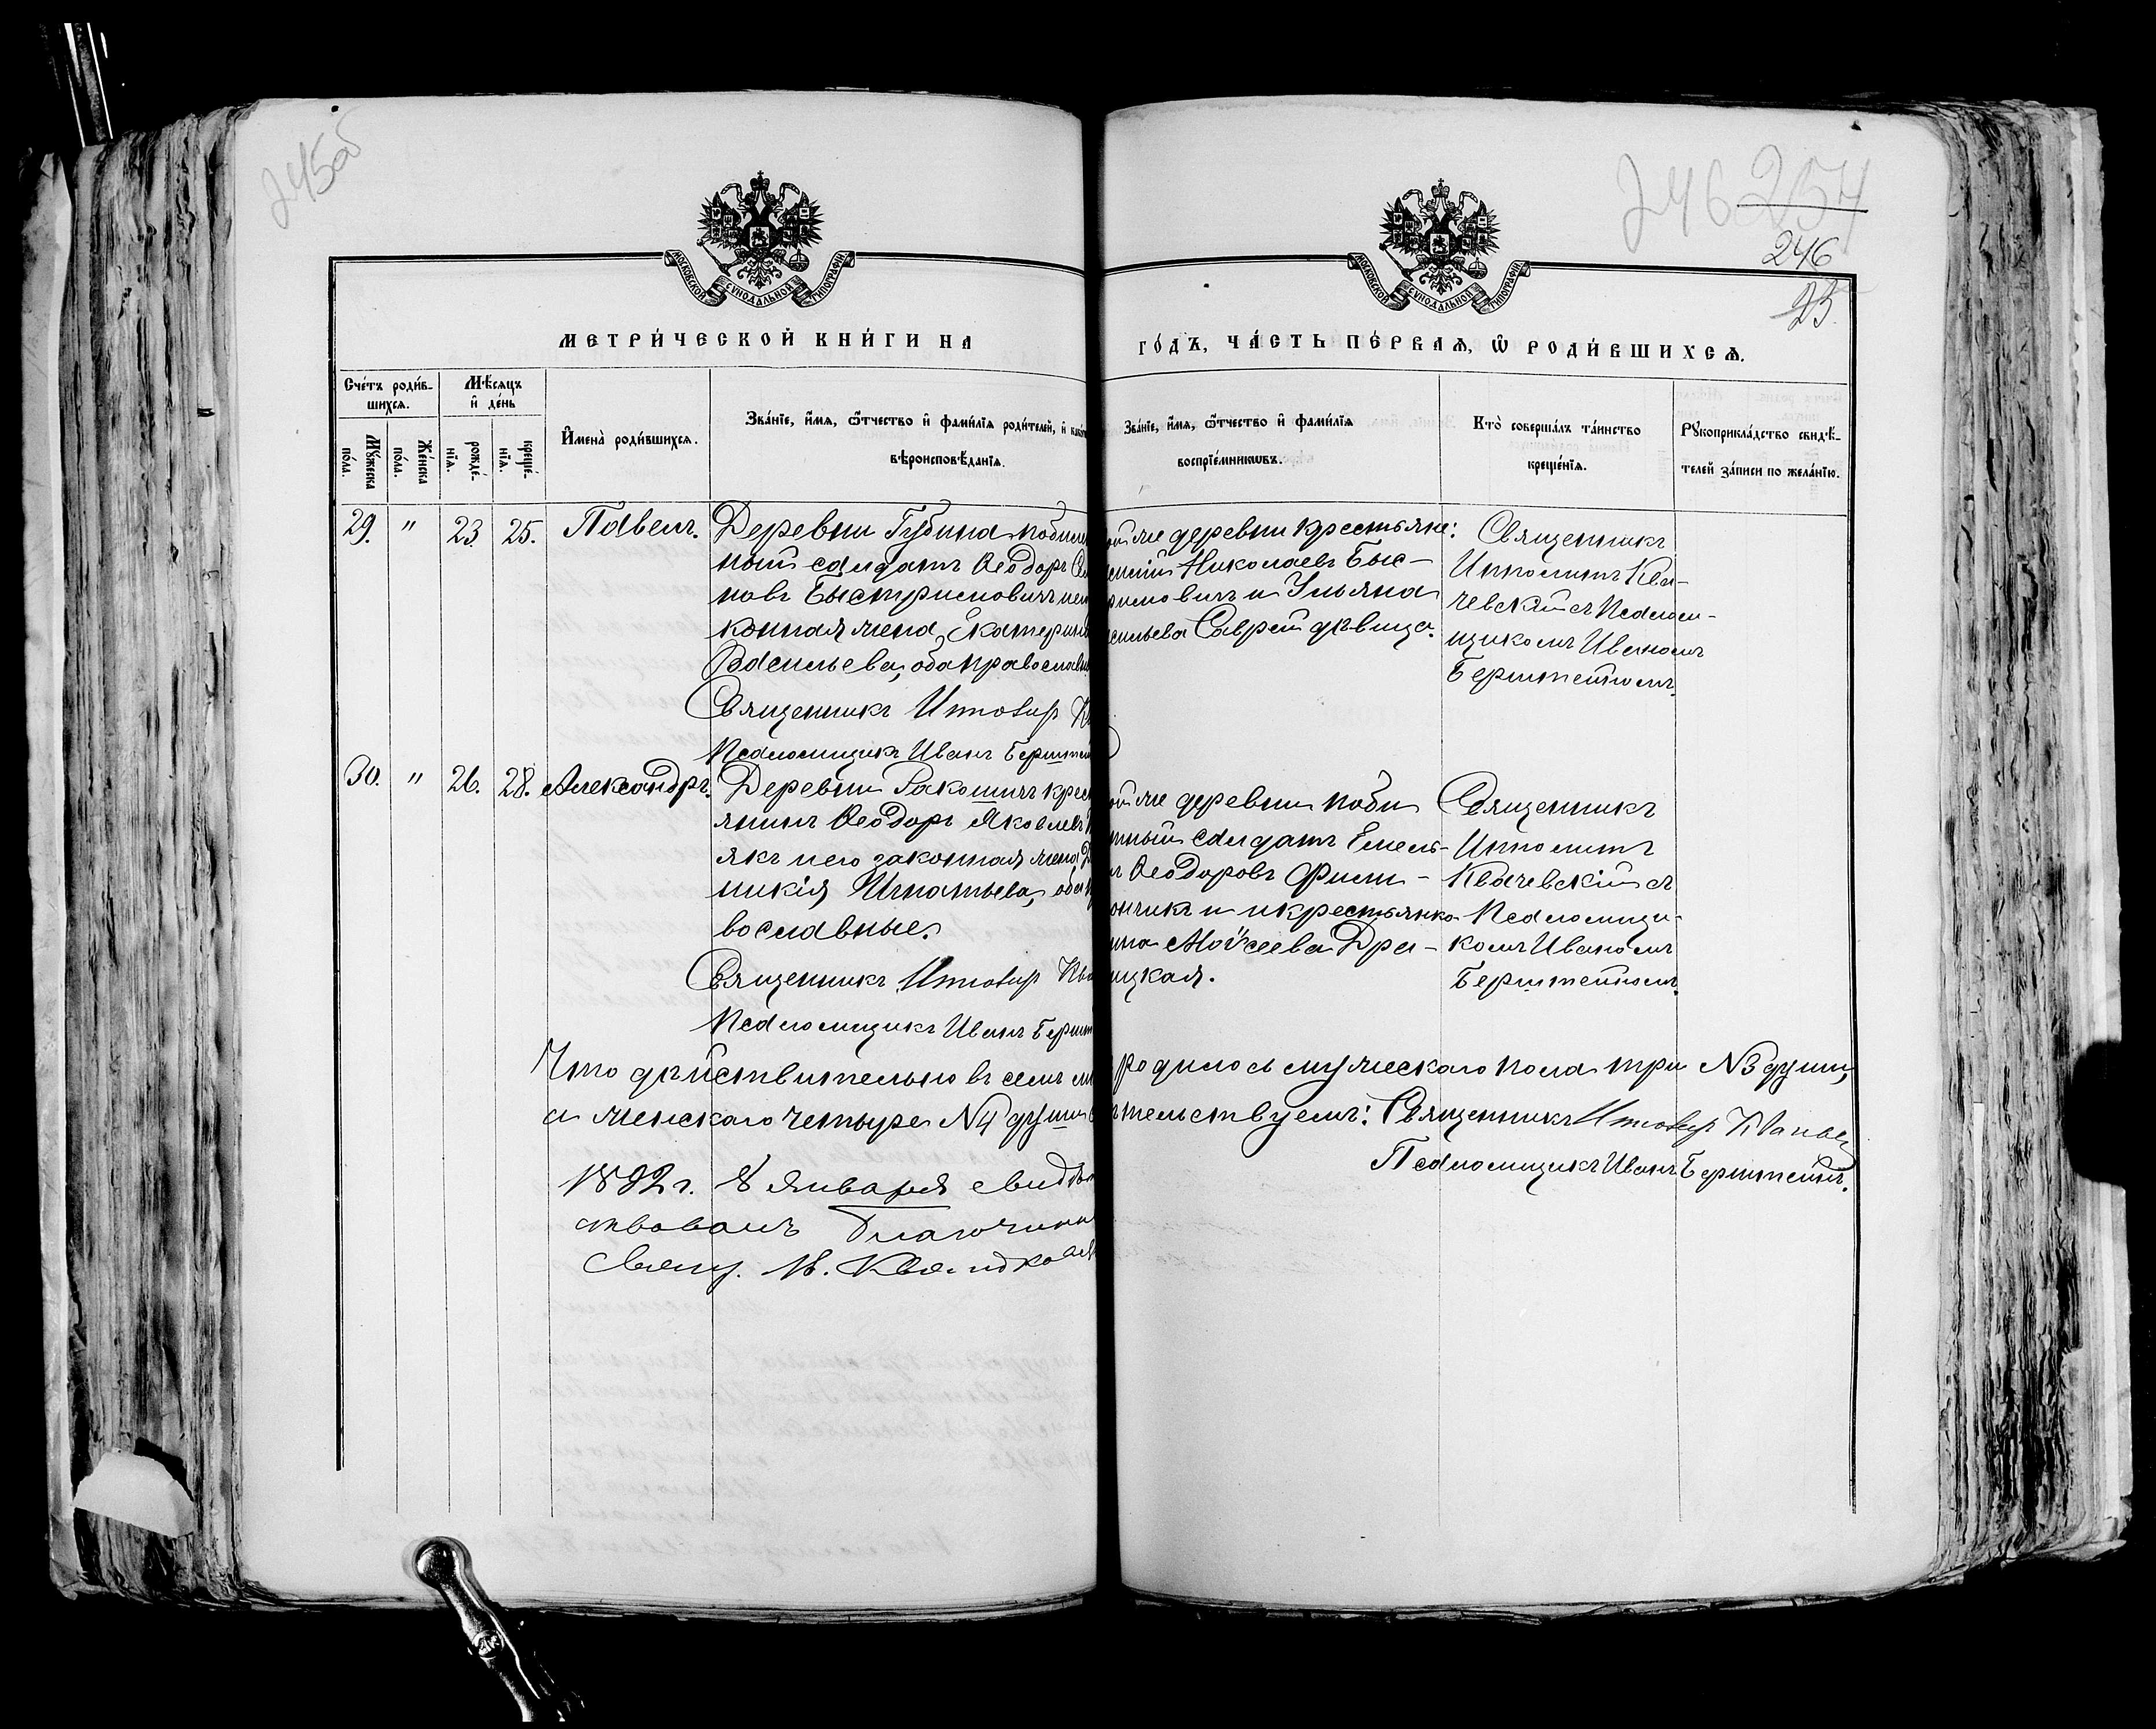 245об
246 254
246
23.
МОСКОВСКОЙ СѴНОДАЛЬНОЙ ТИПОГРАФІИ
МОСКОВСКОЙ СѴНОДАЛЬНОЙ ТИПОГРАФІИ
МЕТРИ́ЧЕСКОЙ КНИ́ГИ НА
ГО́ДЪ, ЧА́СТЬ ПЕ́РВАѦ, Ѿ РОДИ́ВШИХСѦ.
Сче́тъ роди́в-
шихсѧ.
Мѣ́сѧцъ
и҆ де́нь
Мꙋ́жеска
по́ла.
Же́нска
по́ла.
рожде́-
нїѧ.
креще́-
нїѧ.
И҆мена̀ роди́вшихсѧ.
Зва́нїе, и҆́мѧ, ѻ҆́тчество и҆ фами́лїѧ роди́телей, и҆
вѣроисповѣ́данїѧ.
Зва́нїе, и҆́мѧ, ѻ҆́тчество и҆ фами́лїѧ
воспрїе́мникѡвъ.
Кто̀ соверша́лъ та́инство
креще́нїѧ.
Рꙋкоприкла́дство свидѣ́-
телей за́писи по жела́нїю.
29. " 23. 25. Павелъ.
Деревни Губина побил
ный солдатъ Ѳеодоръ
новъ Быстримовичъ
конная жена, Екатерина
Васильева, оба православн
Священникъ
Псаломщикъ Иванъ Берштей
ой же деревни крестьяне:
Николаевъ Быс-
римовичъ и Ульяна
сильева Саврей дѣвица.
Священникъ
Ипполитъ Ква-
чевскій съ Псалом-
щикомъ Иваномъ
Берштейномъ.
30. " 26. 28. Александръ.
Деревни Ракошичъ крест
янинъ Ѳеодоръ Яковлевъ
якъ и его законная жена
никія Игнатьева, оба
вославные.
Священникъ
Псаломщикъ Иванъ Бершт
ой же деревни поби
тный солдатъ Емель-
Ѳеодоровъ Фили-
ончикъ и крестьянка
Моѵсеева Дра-
ицкая.
Священникъ
Ипполитъ
Квачевскій съ
Псаломщи-
комъ Иваномъ
Берштейномъ.
Что дѣйствительно въ семъ родилось мужескаго пола три №3 души,
а женскаго четыре №4 души тельствуемъ: Священникъ
Псаломщикъ Иванъ Берштейнъ.
1892 г. 8 Января свидѣт
ствовалъ Благочинн
Свящ.